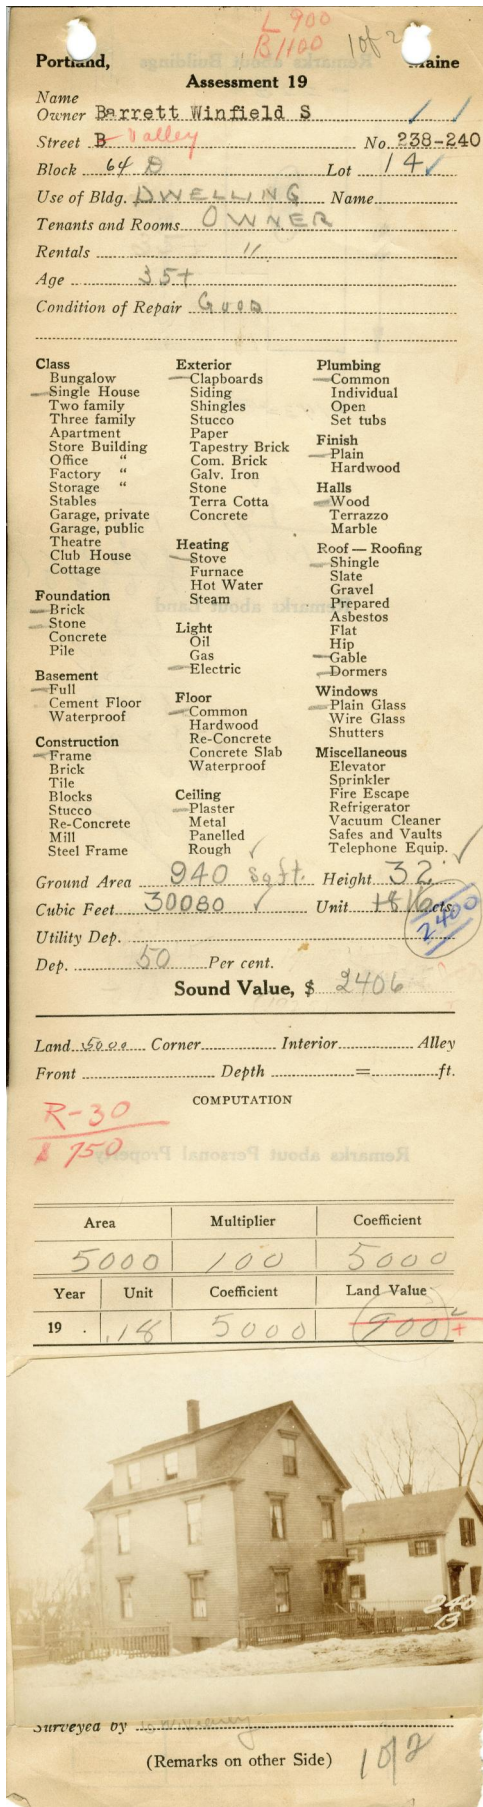 L 900
B 1100
1 of 2
Portland, Maine
Assessment 19
Name
Owner Barrett Winfield S
Street B Valley No. 238-240
Block 64 D Lot 14
Use of Bldg. DWELLING Name
Tenants and Rooms OWNER
Rentals "
Age 35+
Condition of Repair GOOD
Class
Bungalow
Single House
Two family
Three family
Apartment
Store Building
Office "
Factory "
Storage "
Stables
Garage, private
Garage, public
Theatre
Club House
Cottage
Foundation
Brick
Stone
Concrete
Pile
Basement
Full
Cement Floor
Waterproof
Construction
Frame
Brick
Tile
Blocks
Stucco
Re-Concrete
Mill
Steel Frame
Exterior
Clapboards
Siding
Shingles
Stucco
Paper
Tapestry Brick
Com. Brick
Galv. Iron
Stone
Terra Cotta
Concrete
Heating
Stove
Furnace
Hot Water
Steam
Light
Oil
Gas
Electric
Floor
Common
Hardwood
Re-Concrete
Concrete Slab
Waterproof
Ceiling
Plaster
Metal
Panelled
Rough
Plumbing
Common
Individual
Open
Set tubs
Finish
Plain
Hardwood
Halls
Wood
Terrazzo
Marble
Roof — Roofing
Shingle
Slate
Gravel
Prepared
Asbestos
Flat
Hip
Gable
Dormers
Windows
Plain Glass
Wire Glass
Shutters
Miscellaneous
Elevator
Sprinkler
Fire Escape
Refrigerator
Vacuum Cleaner
Safes and Vaults
Telephone Equip.
Ground Area 940 sq ft. Height 32
Cubic Feet 30080 Unit 16 cts.
2400
Utility Dep.
Dep. 50 Per cent.
Sound Value, $ 2406
Land 5000 Corner Interior Alley
Front Depth = ft.
COMPUTATION
R-30
$ 750
Area Multiplier Coefficient
5000 100 5000
Year Unit Coefficient Land Value
19 . .18 5000 900
240
B
Surveyed by
(Remarks on other Side)
1 of 2